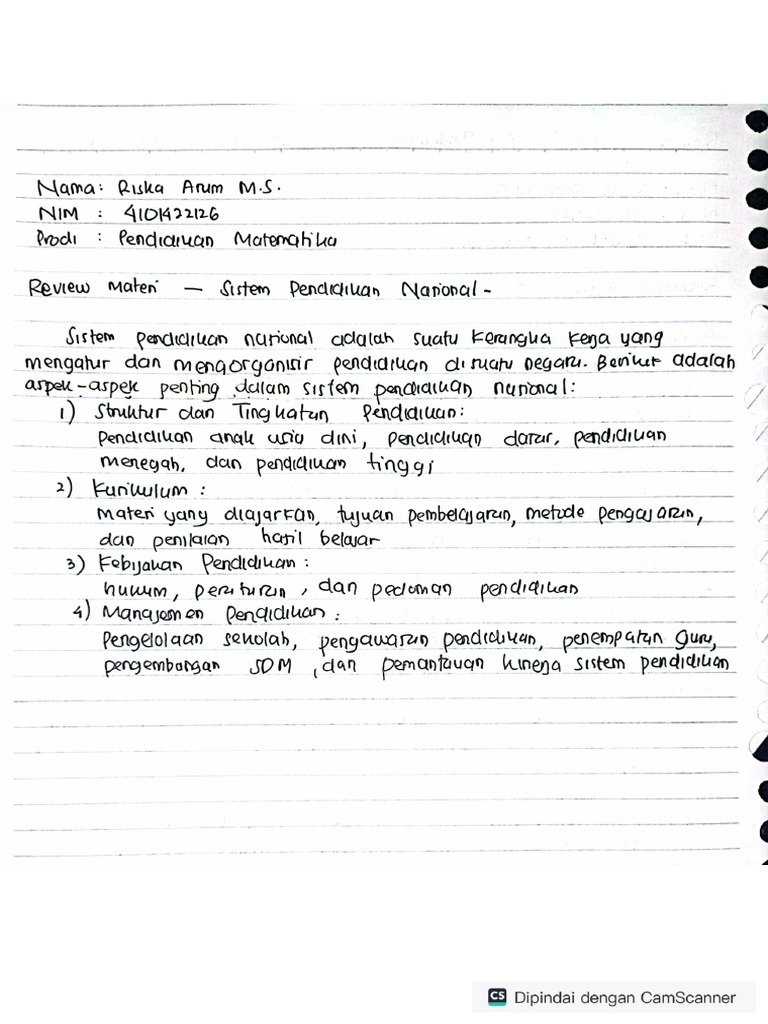 Nama: Riska Arum M.S.
NIM : 4101422126
Prodi : Pendidikan Matematika
Review Materi — Sistem Pendidikan Nasional -
Sistem pendidikan nasional adalah suatu kerangka kerja yang
mengatur dan mengorganisir pendidikan di suatu negara. Berikut adalah
aspek-aspek penting dalam sistem pendidikan nasional:
1) Struktur dan Tingkatan Pendidikan:
pendidikan anak usia dini, pendidikan dasar, pendidikan
menegah, dan pendidikan tinggi
2) Kurikulum :
Materi yang diajarkan, tujuan pembelajaran, metode pengajaran,
dan penilaian hasil belajar
3) Kebijakan Pendidikan :
hukum, peraturan, dan pedoman pendidikan
4) Manajemen Pendidikan :
Pengelolaan sekolah, pengawasan pendidikan, penempatan guru,
pengembangan SDM, dan pemantauan kinerja sistem pendidikan
CS Dipindai dengan CamScanner